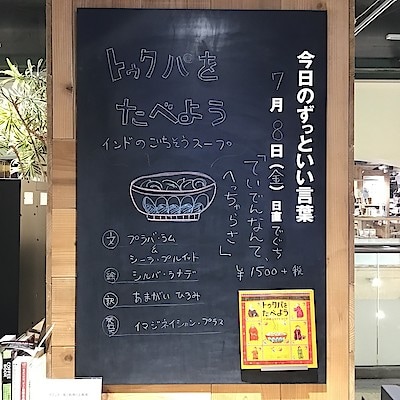 今日のずっといい言葉
7月8日(金)日直でぐち
「ていでんなんて、
へっちゃらさ」
¥1500+税
トゥクパを
たべよう
インドのごちそうスープ
文 プラバ・ラム
&
シーラ・プルイット
絵 シルパ・ラナデ
訳 あまがい ひろみ
発行 イマジネイション・プラス
トゥクパを
たべよう